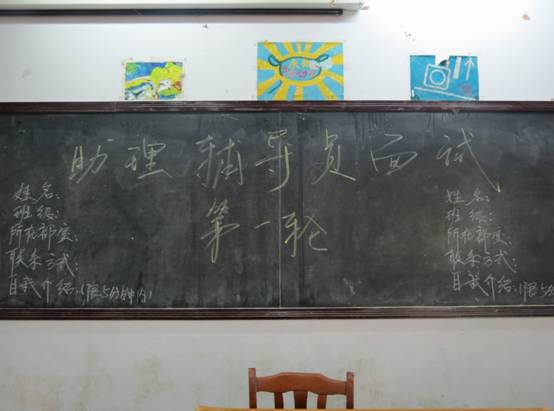 助理辅导员面试
第一轮
姓名:
班级:
所在部度:
联系方式:
自我介绍:(限5分钟内)
姓名:
班级:
所在部度:
联系方式:
自我介绍:(限5分